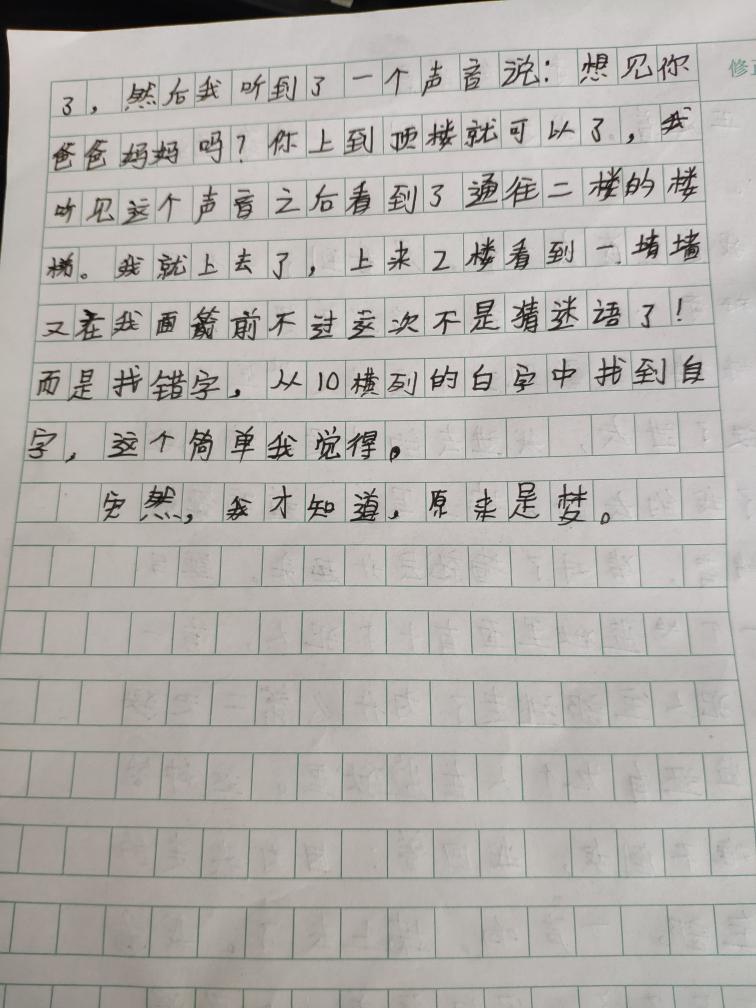 了，然后我听到了一个声音说：想见你
爸爸妈妈吗？你上到顶楼就可以了，我
听见这个声音之后看到了通往二楼的楼
梯。我就上去了，上来2楼看到一堵墙
又在我面前不过这次不是猜迷语了！
而是找错字，从10横列的白字中找到自
字，这个简单我觉得。
突然，我才知道，原来是梦。